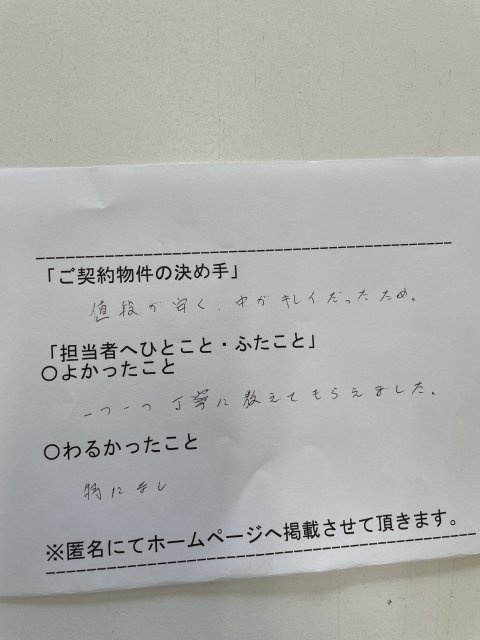 「ご契約物件の決め手」
値段が安く、中がキレイだったため。
「担当者へひとこと・ふたこと」
○よかったこと
一つ一つ丁寧に教えてもらえました。
○わるかったこと
特になし
※匿名にてホームページへ掲載させて頂きます。